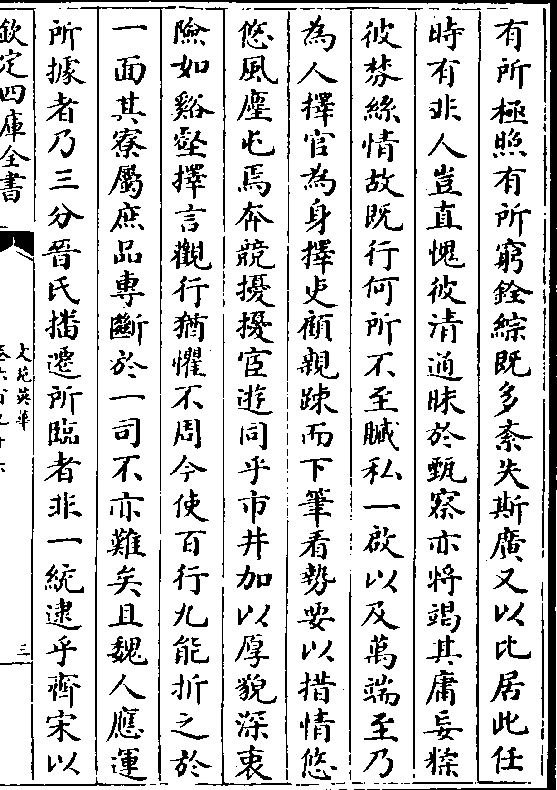 有所極照有所窮銓綜既多紊失斯廣又以比居此任
時有非人豈直愧彼清通昧於甄察亦將竭其庸妄糅
彼棼絲情故既行何所不至贓私一啟以及萬端至乃
為人擇官為身擇吏顧親踈而下筆看勢要以措情悠
悠風塵此焉奔競擾擾宦遊同乎市井加以厚貌深衷
險如谿壑擇言觀行猶懼不周今使百行九能折之於
一面其寮屬庶品專斷於一司不亦難矣且魏人應運
所據者乃三分晉氏播遷所臨者非一統逮乎齊宋以
欽定四庫全書
文苑英華
卷六百九十六
三